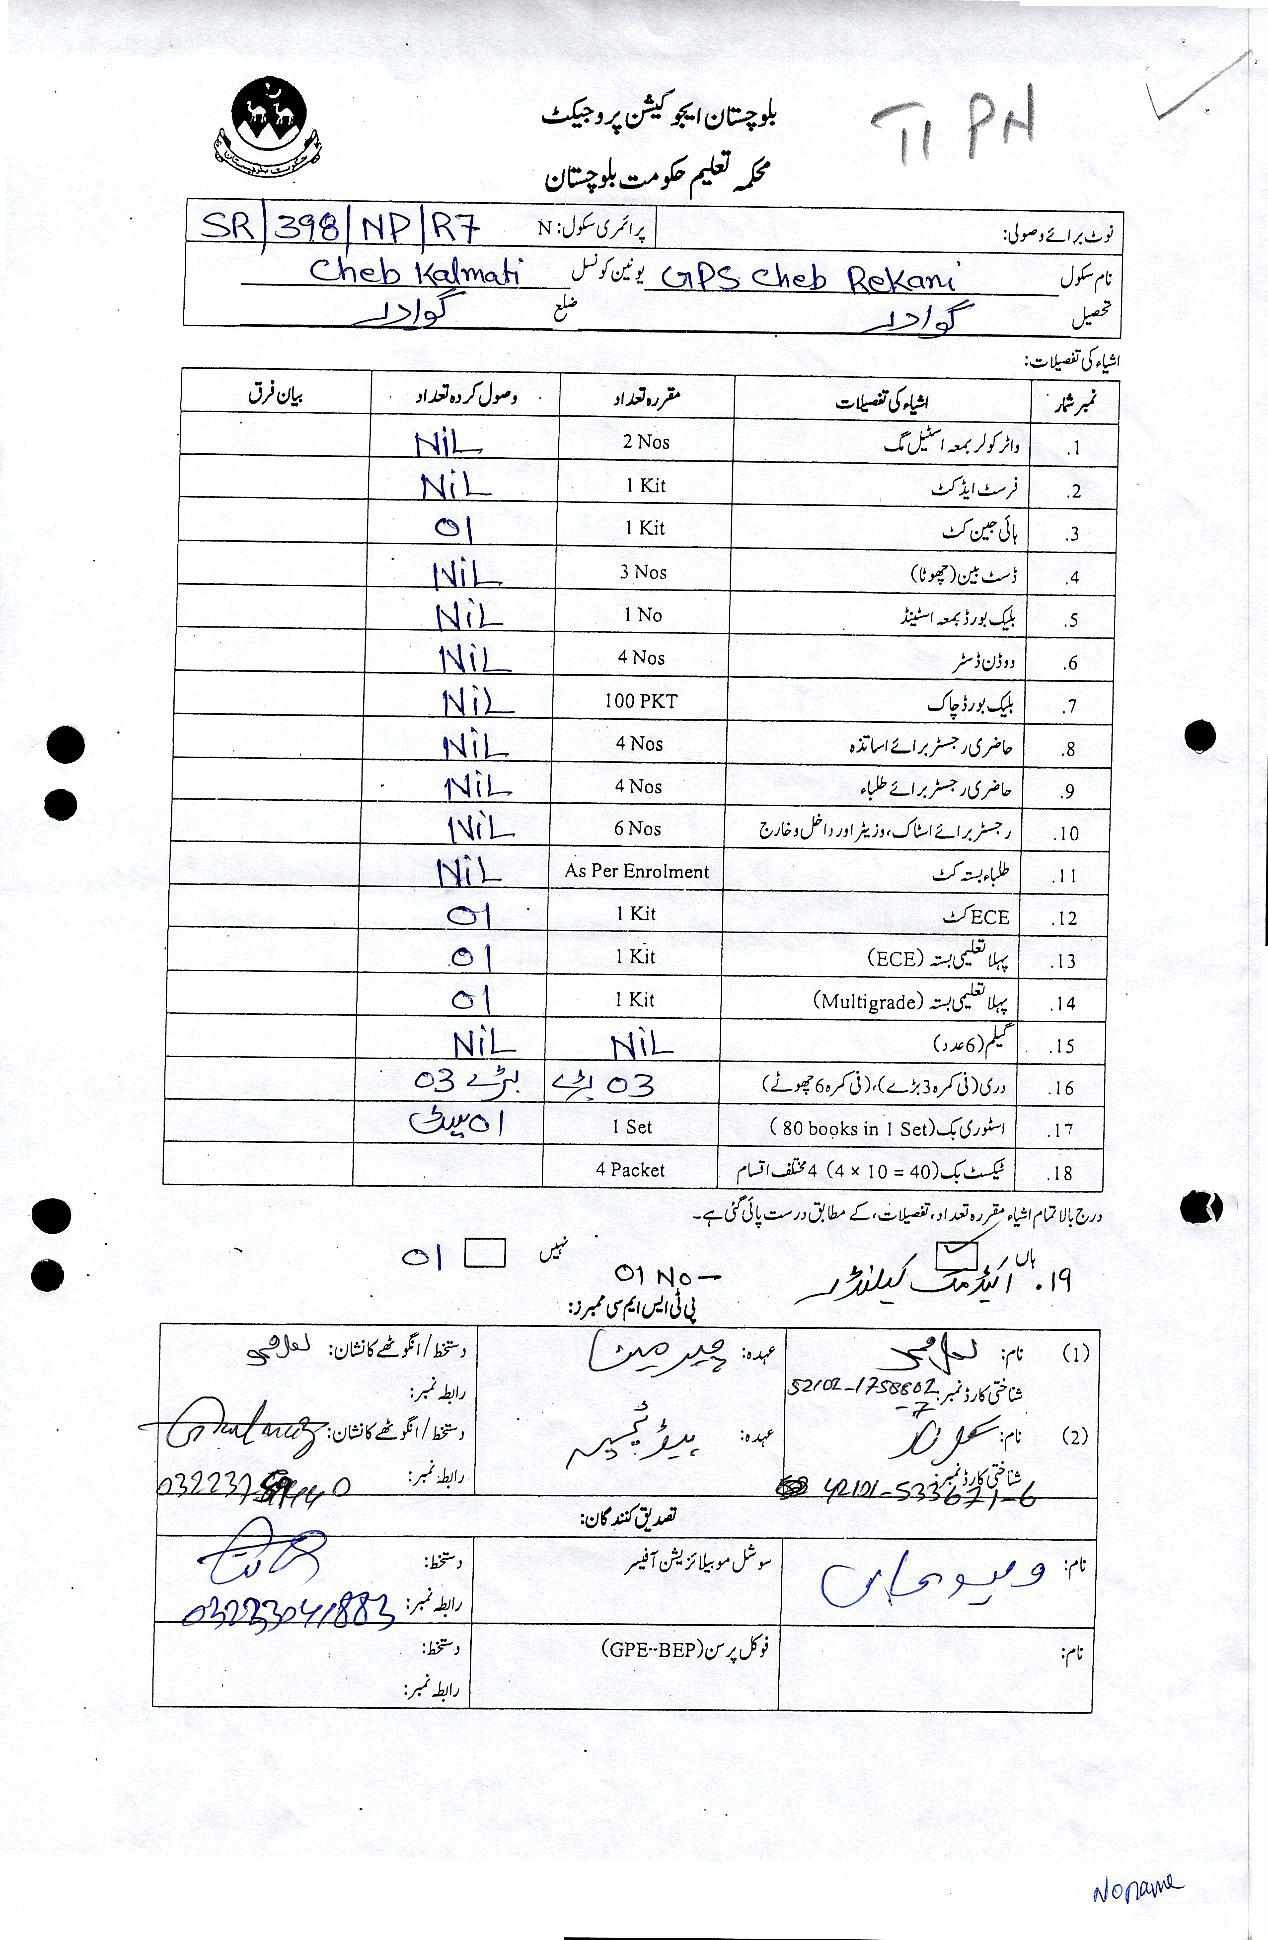 TI PN
بلوچستان ایجوکیشن پروجیکٹ
محکمہ تعلیم حکومت بلوچستان
حکومت بلوچستان
نوٹ برائے وصولی: پرائمری سکول: N SR/398/NP/R7
نام سکول GPS Cheb Rekani یونین کونسل Cheb Kalmati
تحصیل گوادر ضلع گوادر
اشیاء کی تفصیلات:
نمبر شمار اشیاء کی تفصیلات مقررہ تعداد وصول کردہ تعداد بیان فرق
1. واٹر کولر بمعہ اسٹیل مگ 2 Nos NiL
2. فرسٹ ایڈ کٹ 1 Kit NiL
3. ہائی جین کٹ 1 Kit 01
4. ڈسٹ بین (چھوٹا) 3 Nos NiL
5. بلیک بورڈ بمعہ اسٹینڈ 1 No NiL
6. ووڈن ڈسٹر 4 Nos NiL
7. بلیک بورڈ چاک 100 PKT NiL
8. حاضری رجسٹر برائے اساتذہ 4 Nos NiL
9. حاضری رجسٹر برائے طلباء 4 Nos NiL
10. رجسٹر برائے اسٹاک، وزیٹر اور داخل و خارج 6 Nos NiL
11. طلباء بستہ کٹ As Per Enrolment NiL
12. ECE کٹ 1 Kit 01
13. پہلا تعلیمی بستہ (ECE) 1 Kit 01
14. پہلا تعلیمی بستہ (Multigrade) 1 Kit 01
15. گیلم (6 عدد) NiL NiL
16. دری (فی کمرہ 3 بڑے)، (فی کمرہ 6 چھوٹے) 03 بڑے 03 بڑے
17. اسٹوری بک (80 books in 1 Set) 1 Set 01 سیٹ
18. ٹیکسٹ بک (4 × 10 = 40) 4 مختلف اقسام 4 Packet
درج بالا تمام اشیاء مقررہ تعداد، تفصیلات، کے مطابق درست پائی گئی ہے۔
ہاں نہیں
19. اکیڈمک کیلنڈر 01 No 01
پی ٹی ایس ایم سی ممبرز:
(1) نام: لعل محمد عہدہ: چیئرمین دستخط/انگوٹھے کا نشان: لعل محمد
شناختی کارڈ نمبر: 52102-1758802-7 رابطہ نمبر:
(2) نام: عہدہ: ہیڈ ٹیچر دستخط/انگوٹھے کا نشان:
شناختی کارڈ نمبر: 42101-533671-6 رابطہ نمبر:
تصدیق کنندگان:
نام: سوشل موبیلائزیشن آفیسر دستخط:
رابطہ نمبر: 03223041883
نام: فوکل پرسن (GPE--BEP) دستخط:
رابطہ نمبر:
Noname